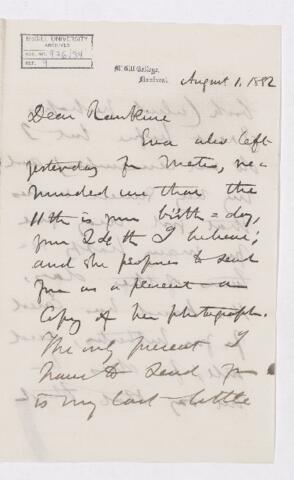 McGILL UNIVERSITY
ARCHIVES
ACC. NO. 926/34
REF. 9
McGill College,
Montreal.
August 1. 1882
Dear Rankine
Eva who left
yesterday for Metis, re=
minded me that the
11th is your birth=day,
your I believe;
and she proposes to send
you as a present — a
Copy of her photograph.
The only present I
have to send you
is my last little